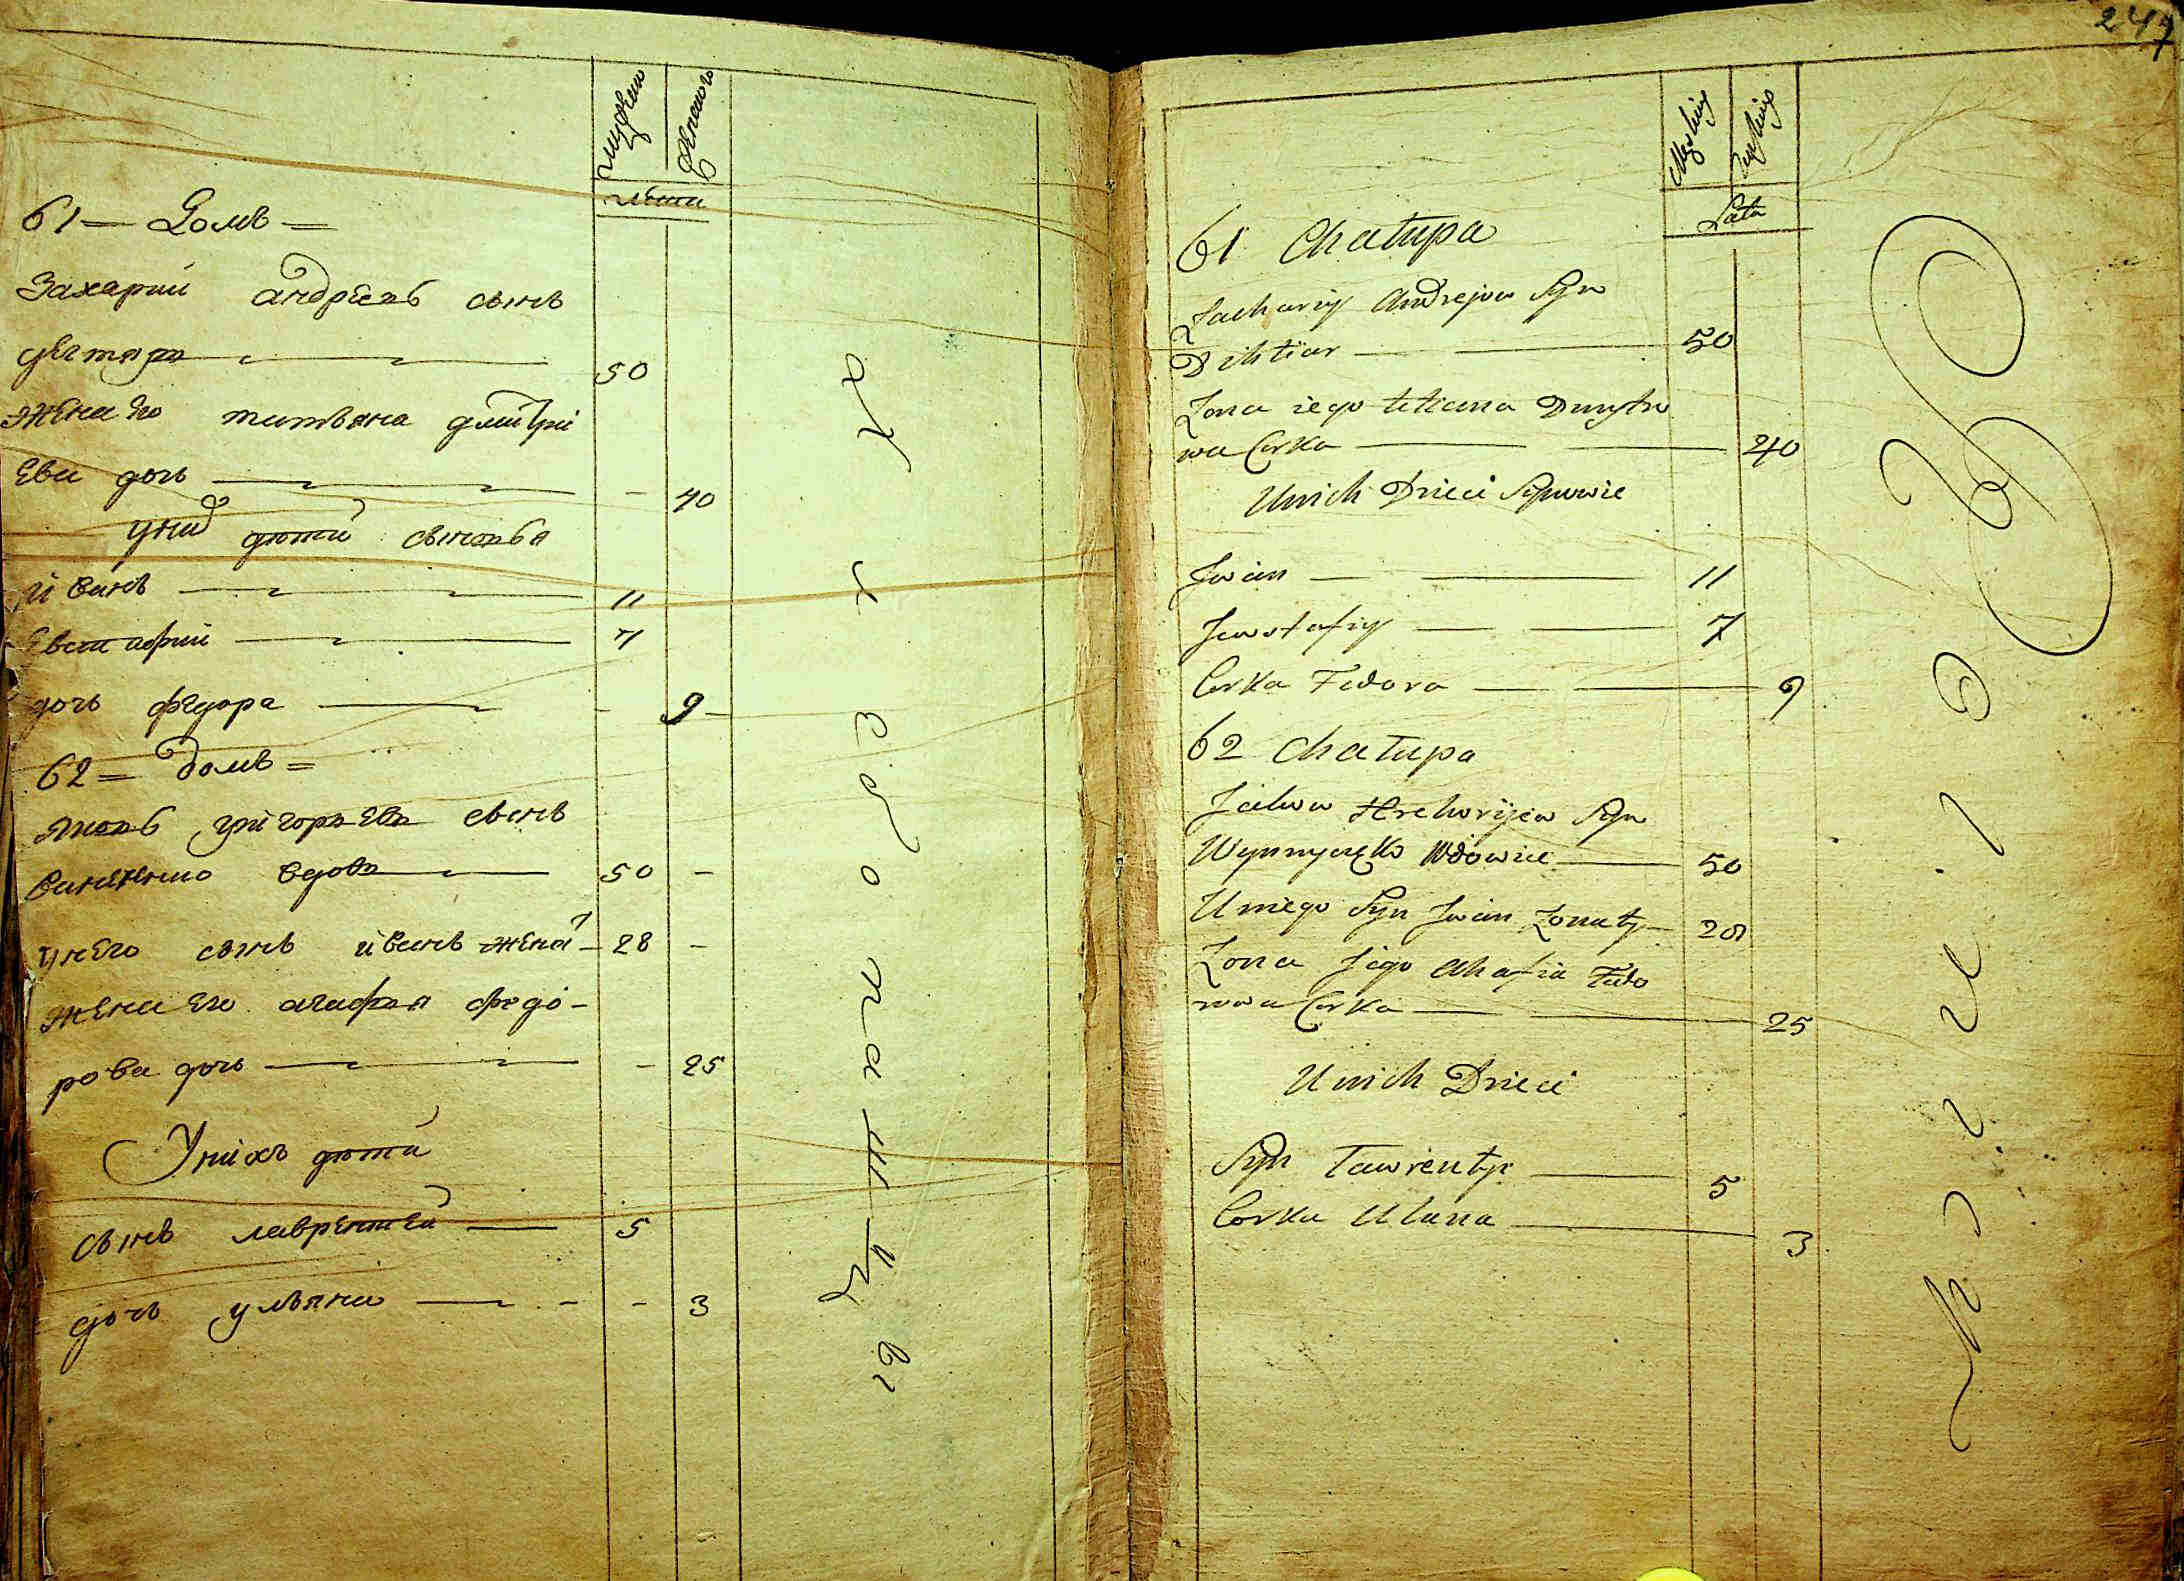 247
лѣта
61 — Домъ —
Захарий андрѣевъ сынъ
дегтяръ 50
жена его татьяна дмитрі
ева дочь — 40
у них дѣти сыновья
иванъ 11
Евстафий 7
дочь федора — 9
62 = домъ =
яковъ григорьевъ сынъ
вдовъ 50 —
у него сынъ иванъ женат — 28 —
жена его агафья федо-
рова дочь — 25
У нихъ дѣти
сынъ лаврентей 5
дочь ульяна — 3
Męskiey
Lata
61 Chałupa
Zachariy Andrejow Syn
Dihtiar 50
Żona iego tetiana Dmytro
wa Corka 40
Unich Dzieci Synowie
Jwan 11
Jewstafiy 7
Corka Fedora 9
62 Chałupa
Jakow Hrehoryiew Syn
Wdowiec 50
U niego Syn Jwan Żonaty 28
Żona Jego Ahafia Fedo
rowa Corka 25
Unich Dzieci
Syn Ławrenty 5
Corka Ulana 3